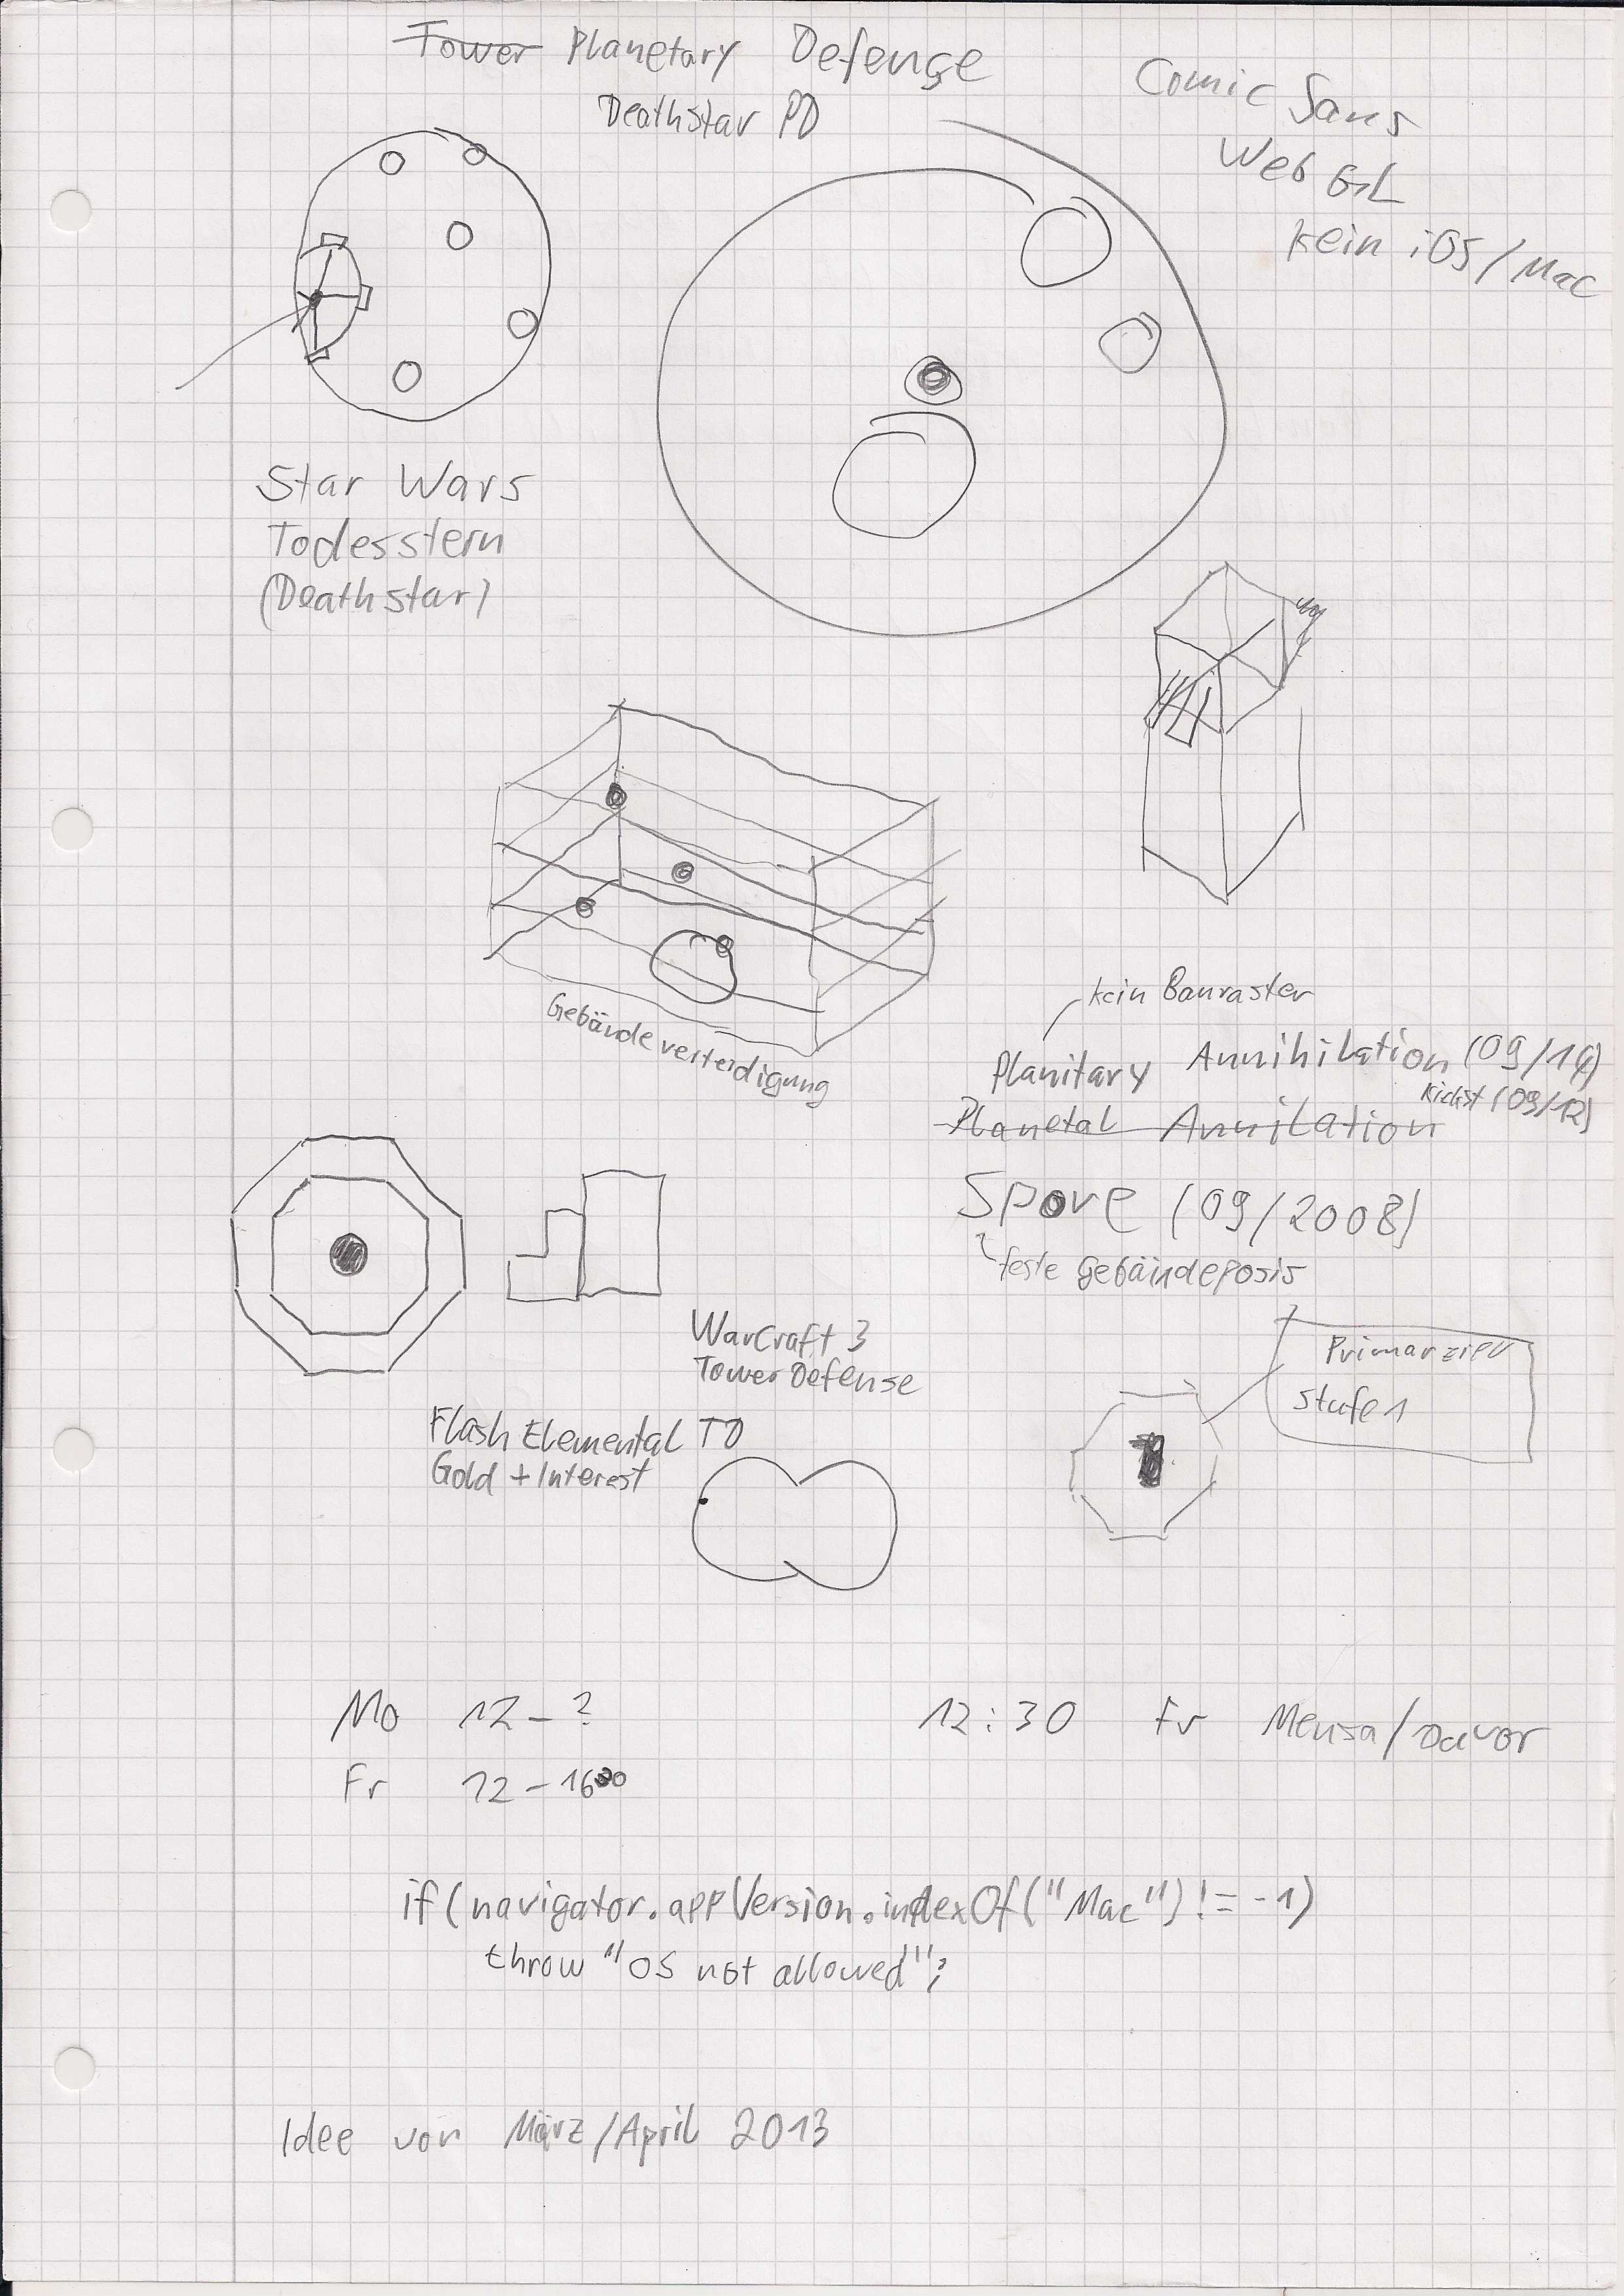 Tower Planetary Defense
Deathstar PD
Comic Sans
WebGL
kein iOS/Mac
Star Wars
Todesstern
(Deathstar)
Gebäudeverteidigung
kein Bauraster
Planitary Annihilation (09/14)
Kickst (09/12)
Planetal Annilation
Spore (09/2008)
feste Gebäudeposis
WarCraft 3
Tower Defense
Flash Elemental TD
Gold + Interest
Primärziel
Stufe 1
Mo 12 - ?
Fr 12 - 1600
12:30 Fr Mensa/Davor
if(navigator.appVersion.indexOf("Mac") != -1)
throw "OS not allowed";
Idee von März/April 2013